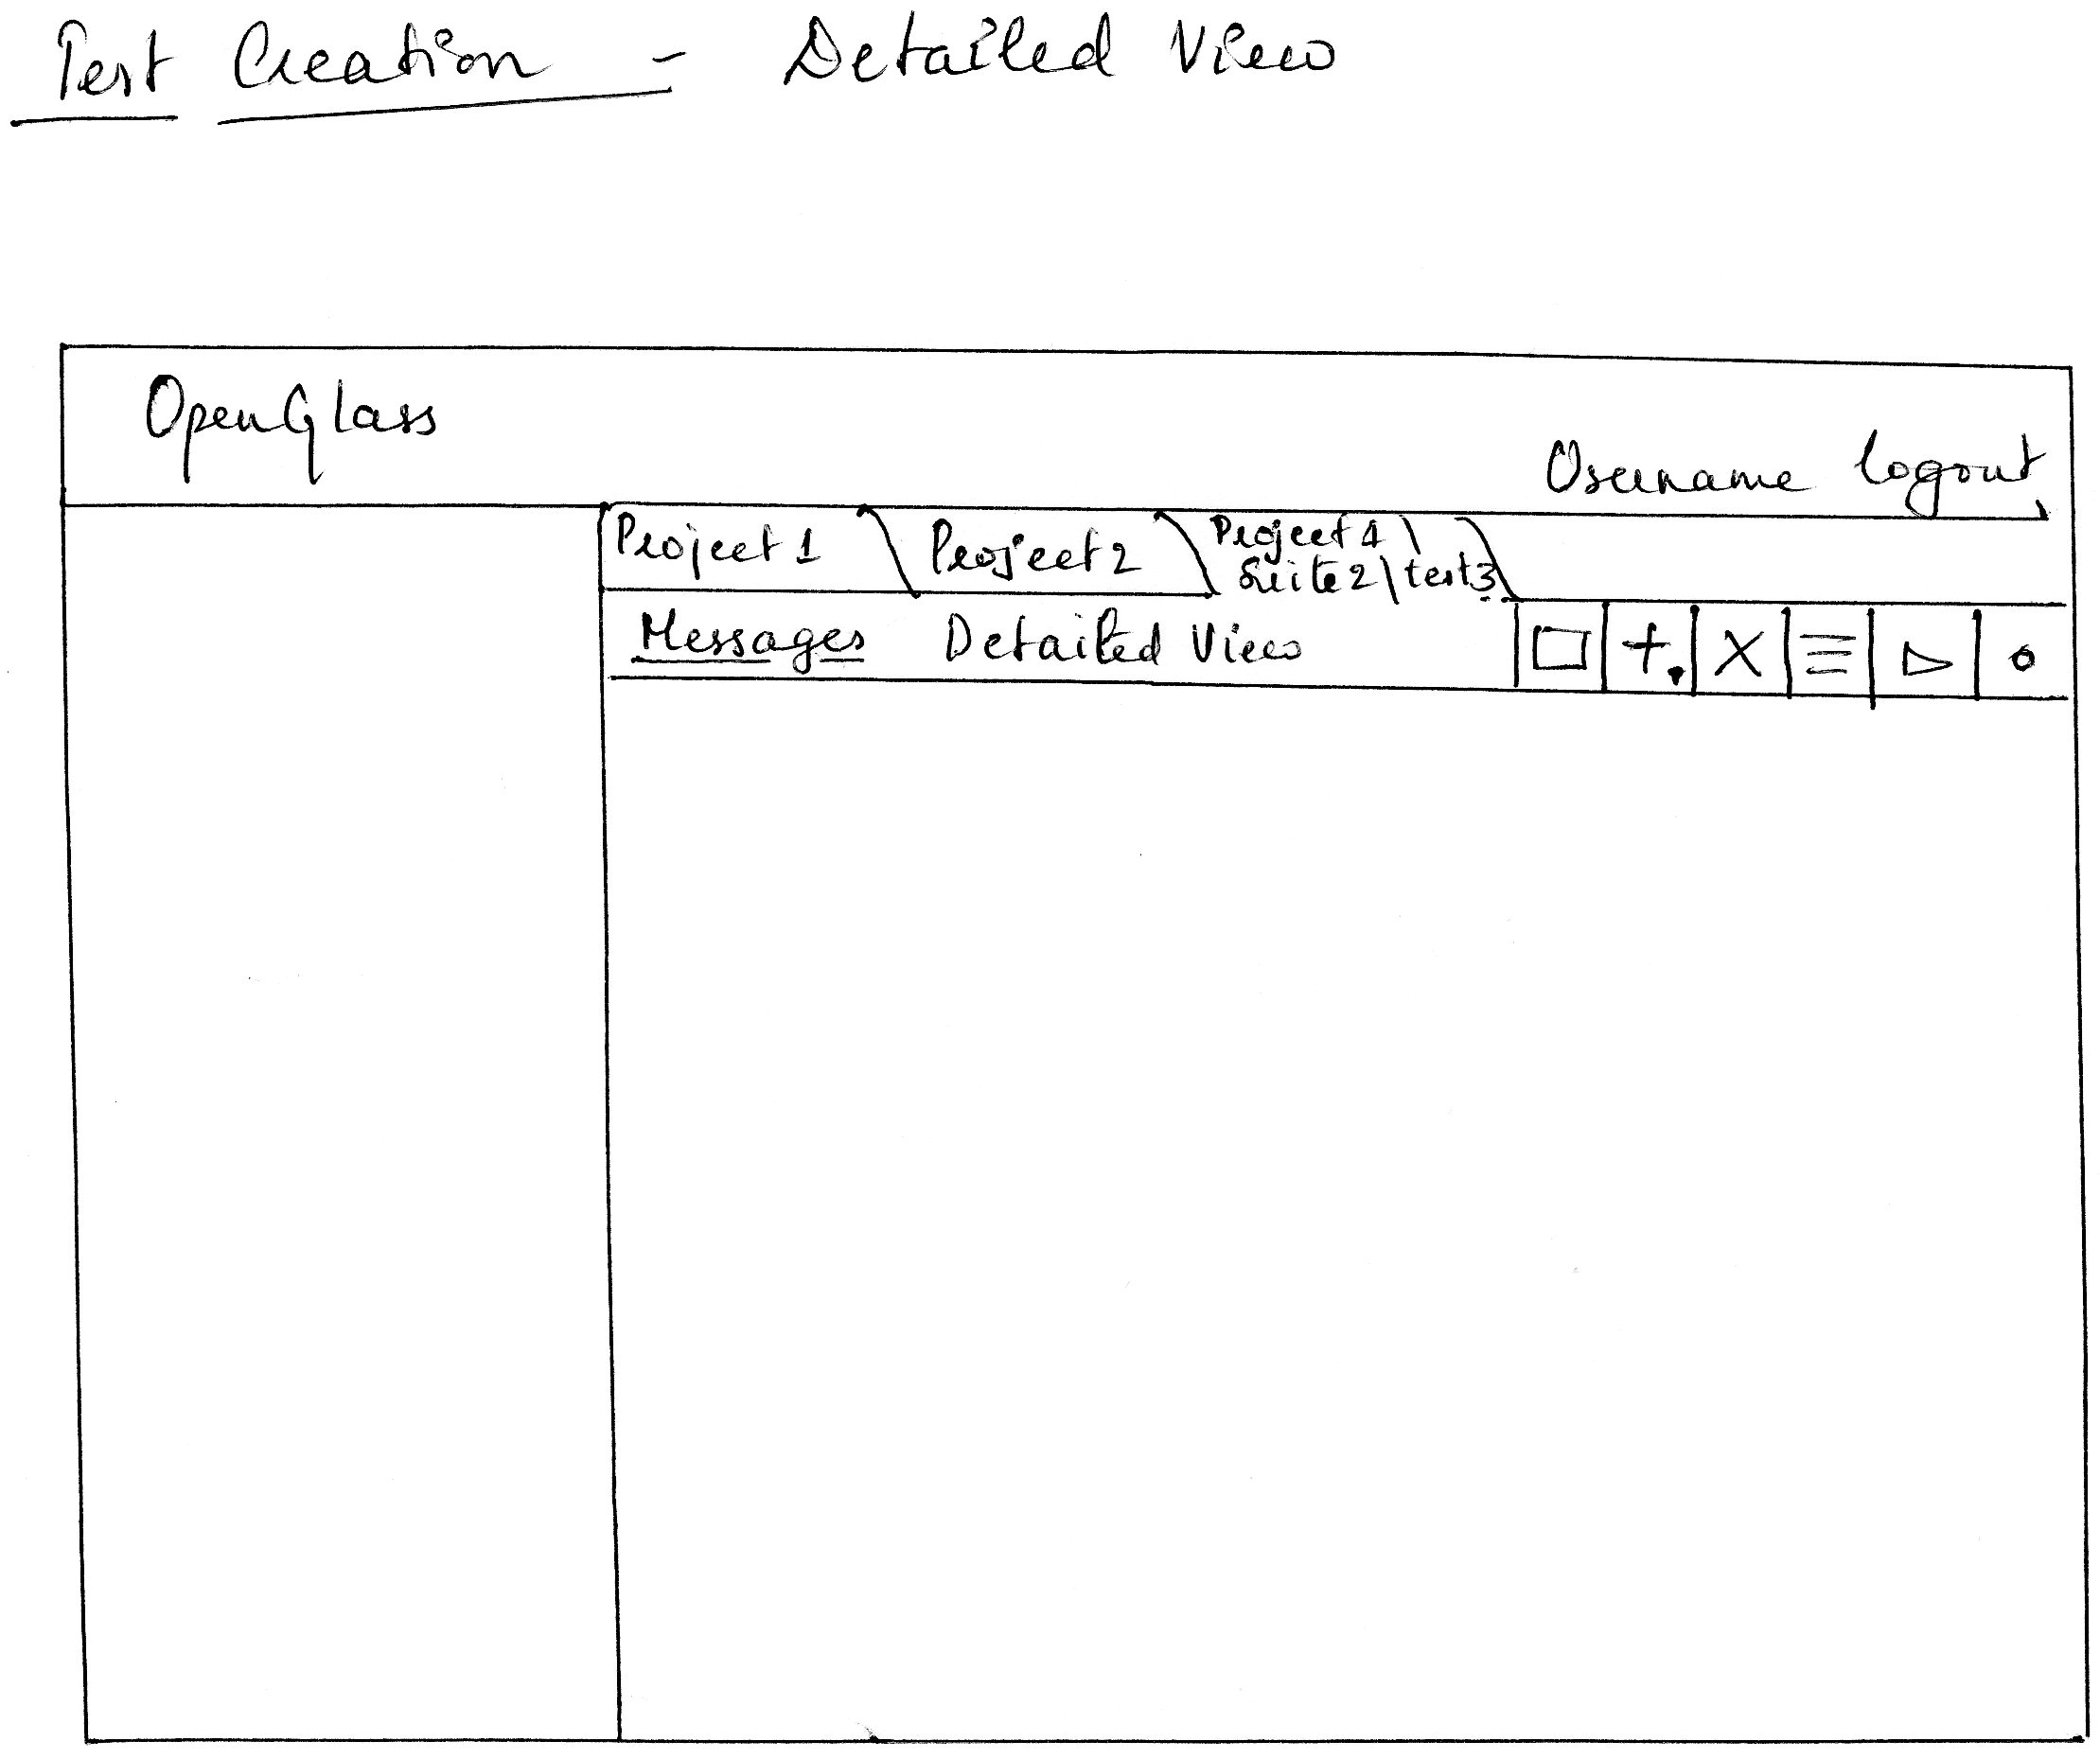 Test Creation - Detailed View
OpenGlass
Username logout
Project 1 Project 2 Project 1 \
Suite 2 \ test3
Messages Detailed View